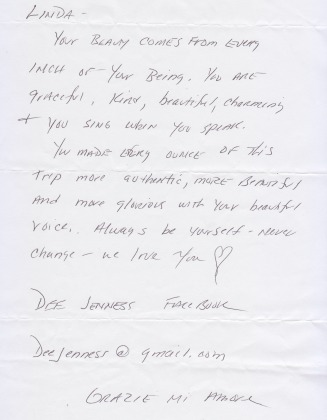 LINDA -
Your Beauty comes from every
inch of - Your Being. You are
graceful, kind, beautiful, charming
+ you sing when you speak.
You made every ounce of this
trip more authentic, more beautiful
and more glorious with your beautiful
voice. Always be yourself - never
change - we love you ♡
DEE JENNESS FACEBOOK
DeeJenness@gmail.com
GRAZIE MI AMORE